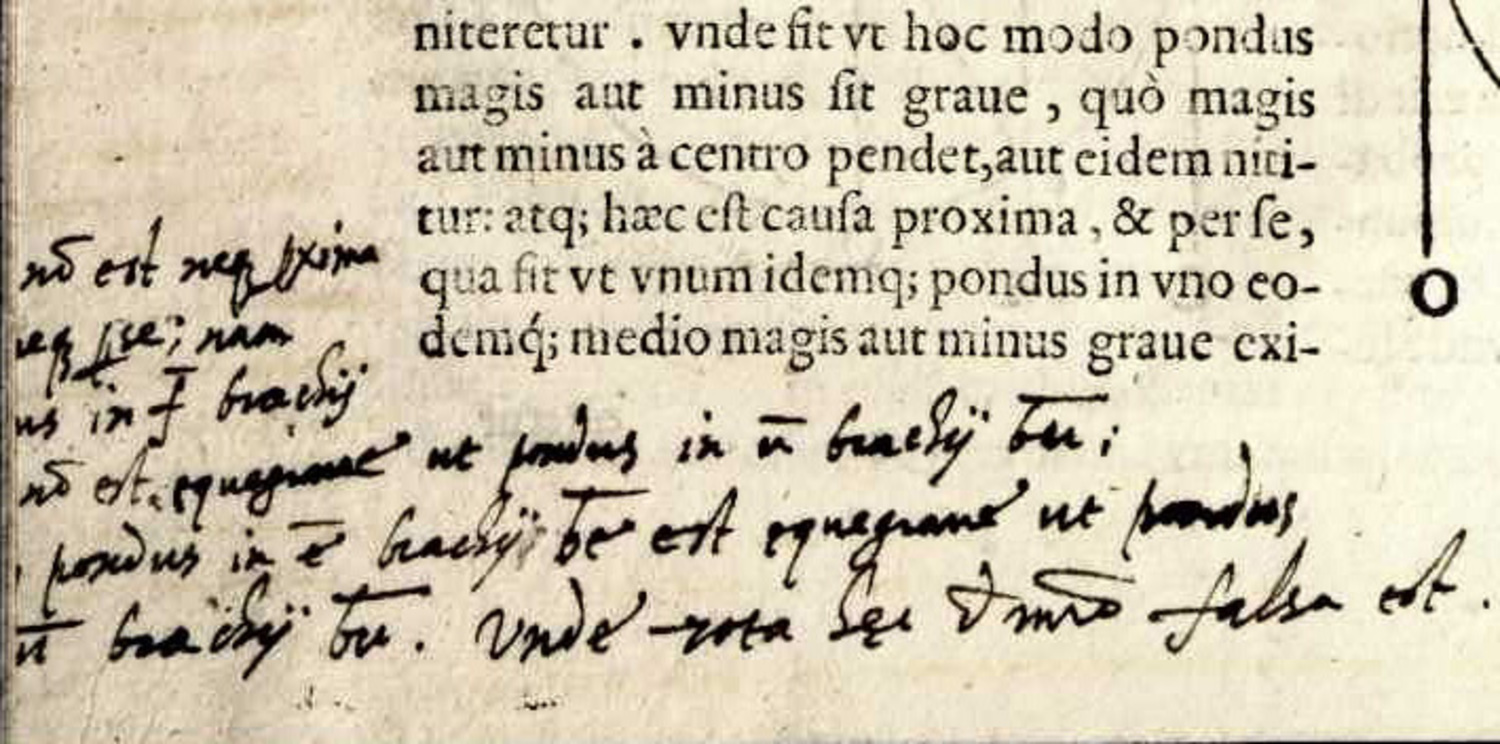 niteretur . vnde fit vt hoc modo pondus
magis aut minus ſit graue , quò magis
aut minus à centro pendet,aut eidem niti-
tur: atq; hæc eſt cauſa proxima , & per ſe,
qua fit vt vnum idemq; pondus in vno eo-
demq́; medio magis aut minus graue exi-
O
nō est neq ꝓxima
eq ꝑse; nam
us in f̄ brachij
nō est equegraue ut pondus in ū brachij b̄u̅;
pondus in ē brachij b̄e̅ est equegraue ut pondus
ū brachij b̄u̅. Vnde tota hęc falsa est.